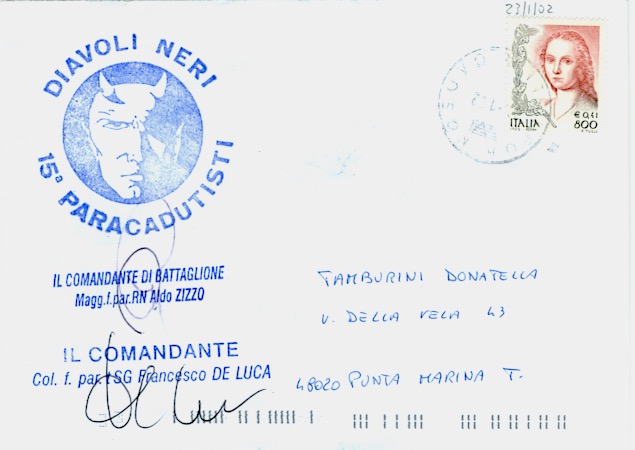 23/1/02
DIAVOLI NERI
15ª PARACADUTISTI
€ 0,41
ITALIA 800
IL COMANDANTE DI BATTAGLIONE
Magg.f.par.RN Aldo ZIZZO
IL COMANDANTE
Col. f. par. tSG Francesco DE LUCA
TAMBURINI DONATELLA
V. DELLA VELA 43
48020 PUNTA MARINA T.